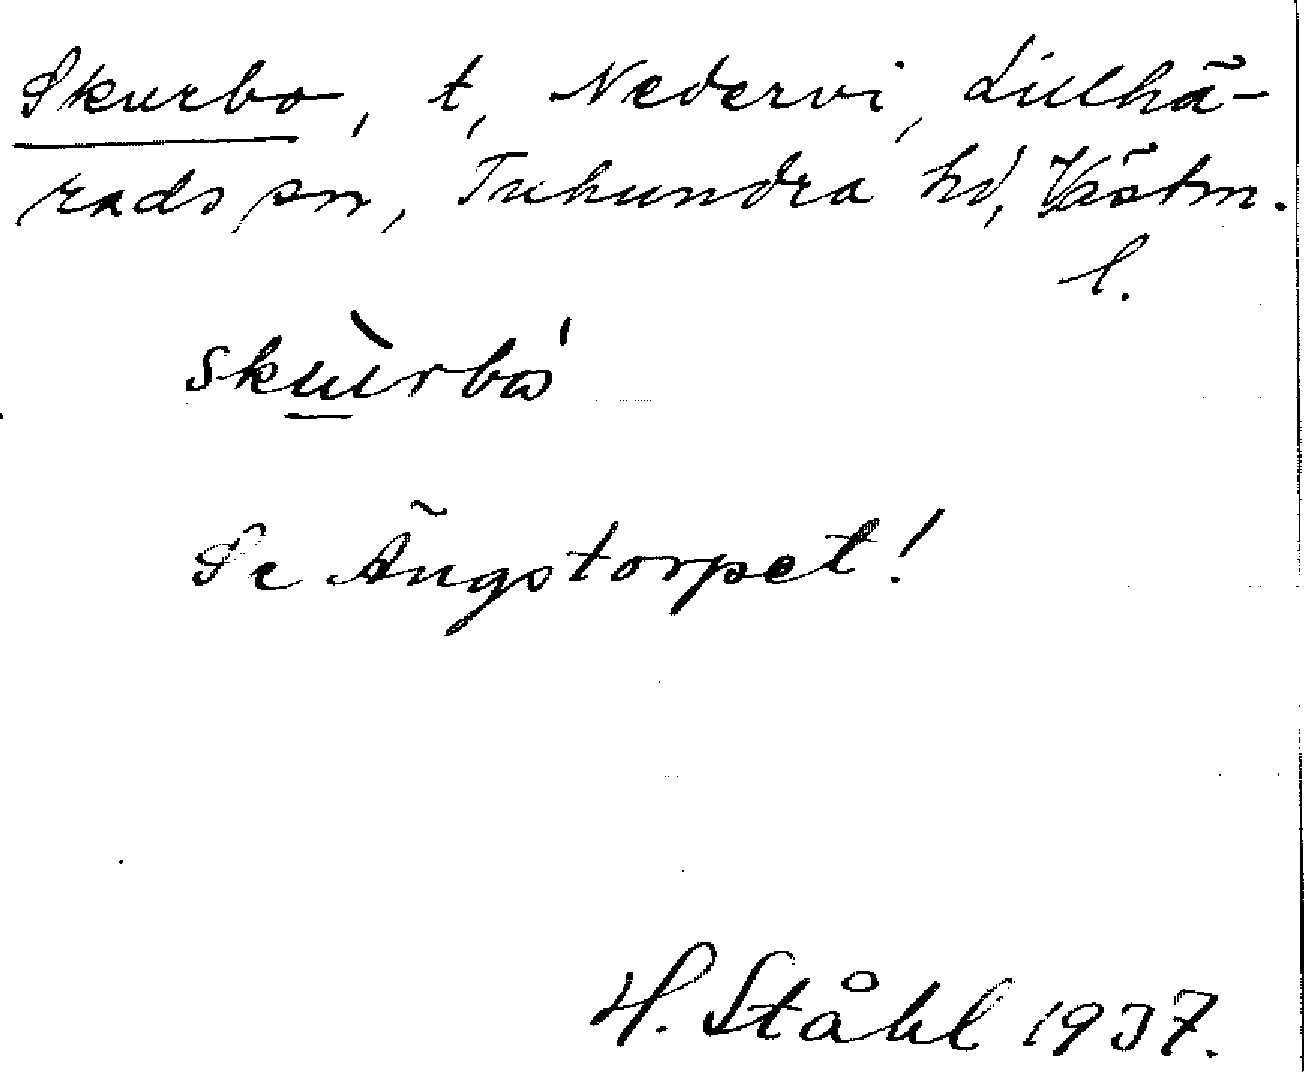 Skurbo, t, Nedervi, Lillhä-
rads sn, Tuhundra hd, Västm.
l.
skùrbó
Se Ängstorpet!
H. Ståhl 1937.